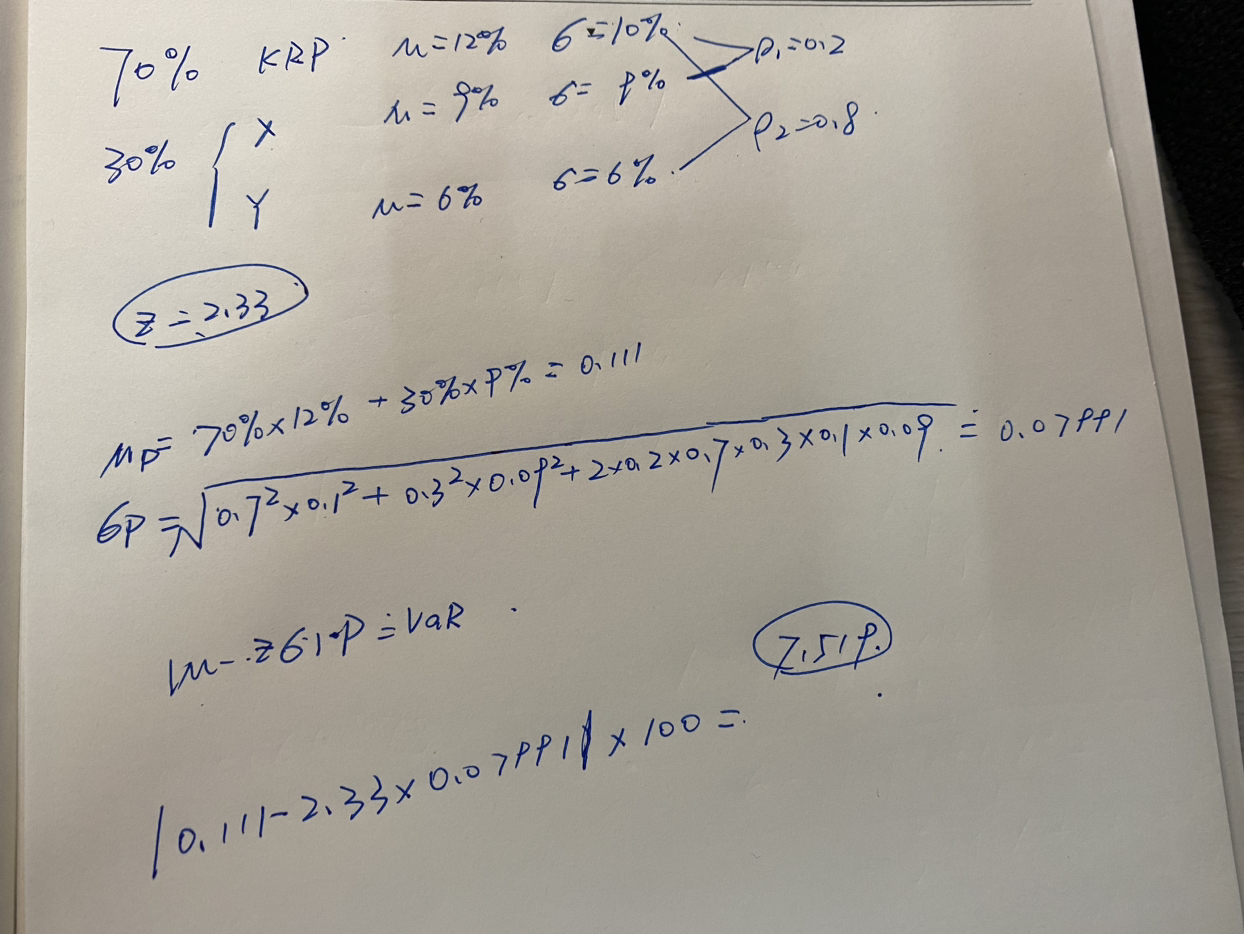 70% KRP μ=12% σ=10% ρ₁=0.2
μ=9% σ=9%
30% { X ρ₂=0.8
Y μ=6% σ=6%
z=2.33
μp=70%×12%+30%×9%=0.111
σp=√0.7²×0.1²+0.3²×0.09²+2×0.2×0.7×0.3×0.1×0.09=0.07991
|μ-zσ|·P=VaR
7.519
|0.111-2.33×0.07991|×100=